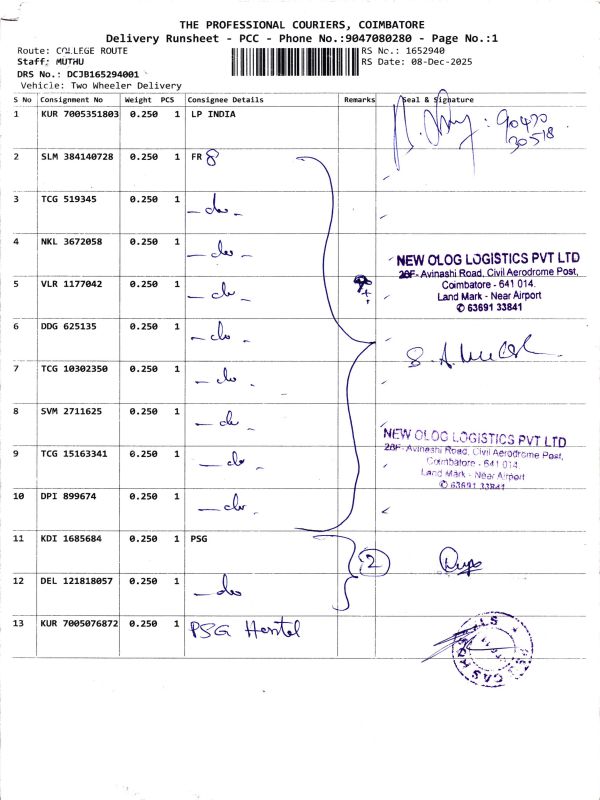 THE PROFESSIONAL COURIERS, COIMBATORE
Delivery Runsheet - PCC - Phone No.:9047080280 - Page No.:1
Route: COLLEGE ROUTE
RS No.: 1652940
Staff: MUTHU
RS Date: 08-Dec-2025
DRS No.: DCJB165294001
Vehicle: Two Wheeler Delivery
S No Consignment No Weight PCS Consignee Details Remarks Seal & Signature
1 KUR 7005351803 0.250 1 LP INDIA : 90470
30518
2 SLM 384140728 0.250 1 FR 8
3 TCG 519345 0.250 1 - do -
4 NKL 3672058 0.250 1 - do -
NEW OLOG LOGISTICS PVT LTD
26F- Avinashi Road, Civil Aerodrome Post,
5 VLR 1177042 0.250 1 - do -
Coimbatore - 641 014.
Land Mark - Near Airport
✆ 63691 33841
6 DDG 625135 0.250 1 - do -
7 TCG 10302350 0.250 1 - do -
8 SVM 2711625 0.250 1 - do -
NEW OLOG LOGISTICS PVT LTD
26F- Avinashi Road, Civil Aerodrome Post,
9 TCG 15163341 0.250 1 - do -
Coimbatore - 641 014.
Land Mark - Near Airport
✆ 63691 33841
10 DPI 899674 0.250 1 - do -
11 KDI 1685684 0.250 1 PSG 2
12 DEL 121818057 0.250 1 - do
13 KUR 7005076872 0.250 1 PSG Hostel